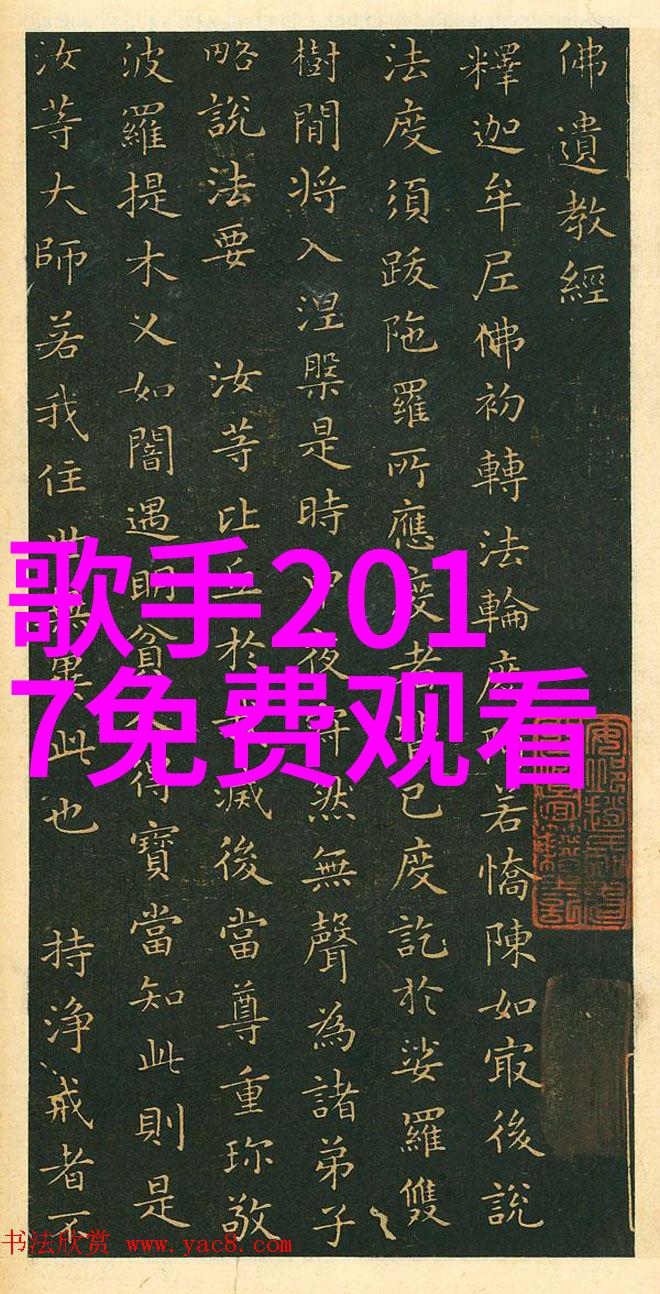 佛遺教經
釋迦牟尼佛初轉法輪度阿若憍陳如冣後說
法度須跋陁羅所應度者皆已度訖於娑羅雙
樹間将入涅槃是時中夜寂然無聲為諸弟子
略說法要 汝等比丘於我滅後當尊重珎敬
波羅提木乂如闇遇明貧人得寶當知此則是
汝等大師若我住世無異此也 持淨戒者不
歌手201
7免费观看
书法欣赏 www.yac8.com